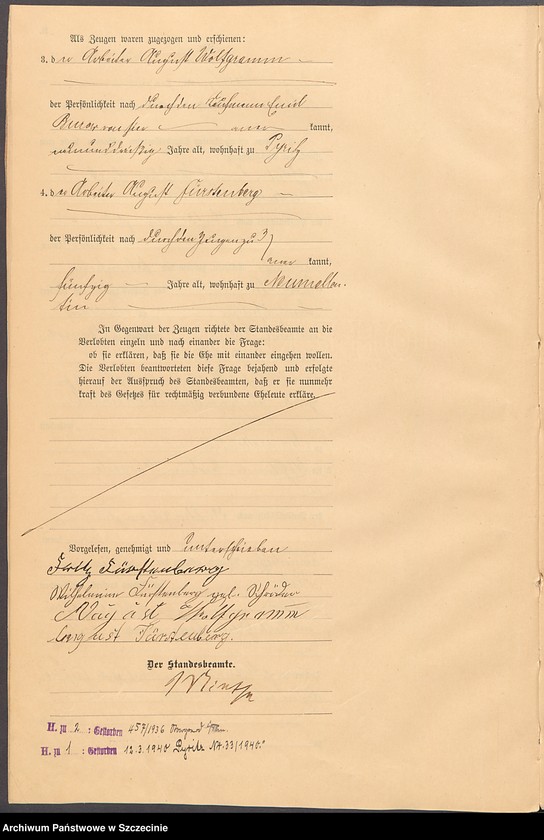 Als Zeugen waren zugezogen und erschienen:
3. der Arbeiter August Wolfgramm
der Persönlichkeit nach durch den Kaufmann Emil
Burow von hier aner kannt,
Jahre alt, wohnhaft zu Pyritz
4. der Arbeiter August Fürstenberg
der Persönlichkeit nach durch den Zeugen zu 3)
aner kannt,
fünfzig Jahre alt, wohnhaft zu
tin
In Gegenwart der Zeugen richtete der Standesbeamte an die
Verlobten einzeln und nach einander die Frage:
ob sie erklären, daß sie die Ehe mit einander eingehen wollen.
Die Verlobten beantworteten diese Frage bejahend und erfolgte
hierauf der Ausspruch des Standesbeamten, daß er sie nunmehr
kraft des Gesetzes für rechtmäßig verbundene Eheleute erkläre.
Vorgelesen, genehmigt und unterschrieben
Fritz Fürstenberg
Wilhelmine Fürstenberg geb. Schröder
August Wolfgramm
August Fürstenberg.
Der Standesbeamte.
H. zu 2 : Gestorben 457/1936
H. zu 1 : Gestorben 12.3.1940 Pyritz Nr. 33/1940.
Archiwum Państwowe w Szczecinie